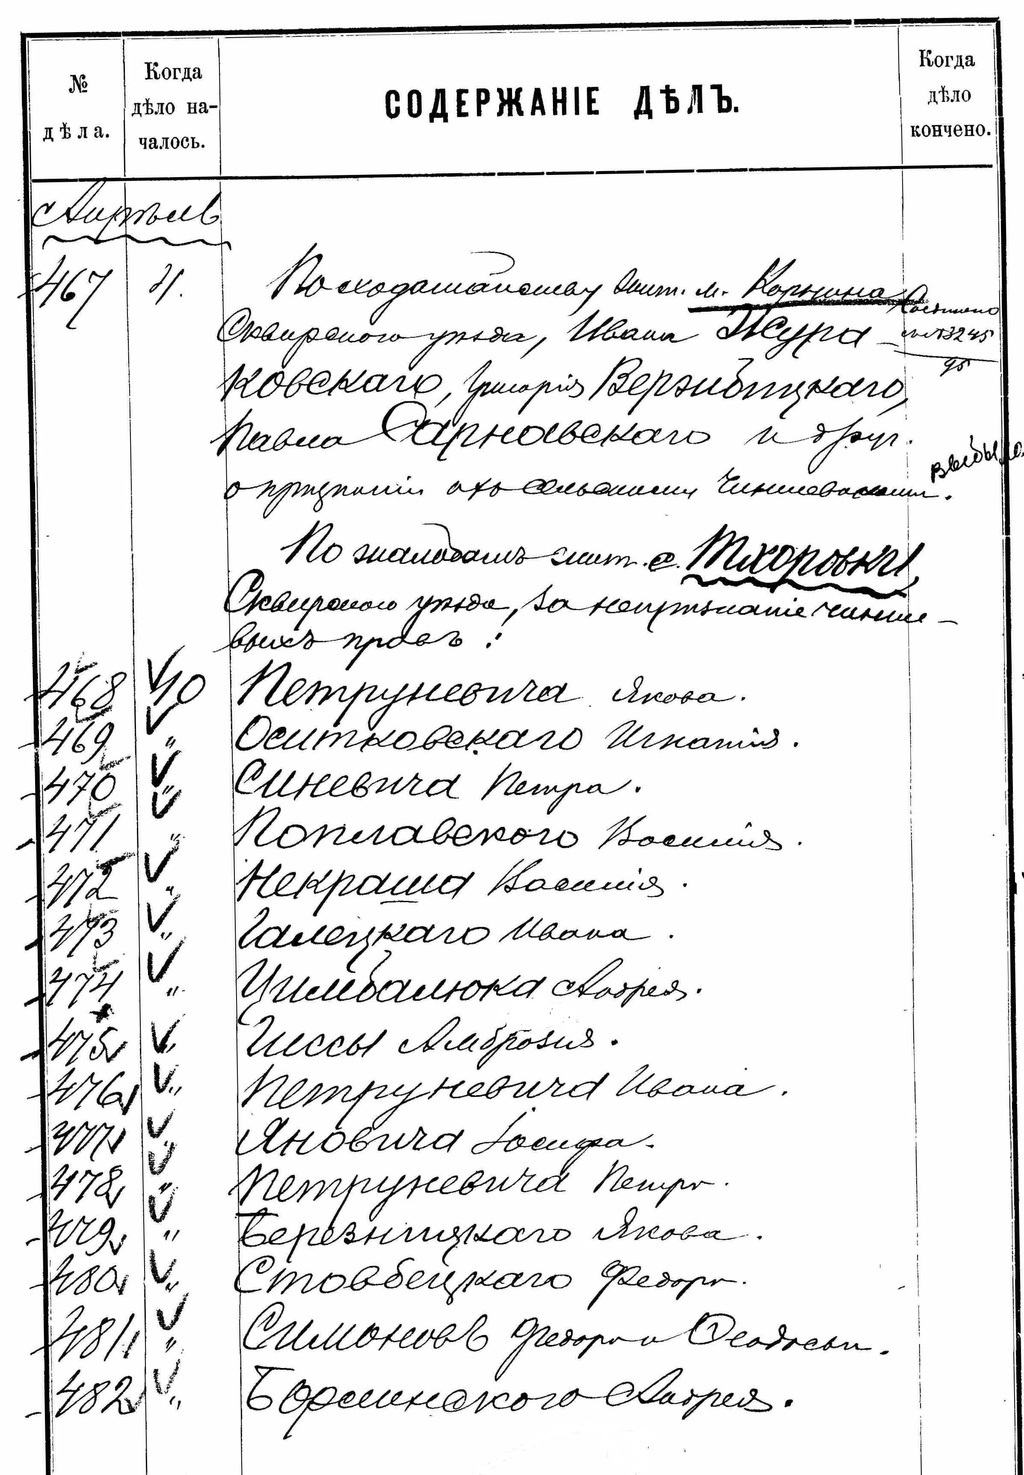 №
дѣла.
Когда
дѣло на-
чалось.
СОДЕРЖАНІЕ ДѢЛЪ.
Когда
дѣло
кончено.
Апрѣль
467 4. По ходатайству жит. м. Корнина
Сквирскаго уѣзда, Ивана Жура-
ковскаго, Григорія Вержбицкаго,
Павла Сарнавскаго и друг.
о признаніи ихъ сельскими чиншевиками.
По жалобамъ жит. с. Тхоровки,
Сквирскаго уѣзда, за непризнаніе чинше-
выхъ правъ:
468 10 Петруневича Якова.
469 " Оситковскаго Игнатія.
470 " Синевича Петра.
471 " Поплавского Василія.
472 " Некраша Василія.
473 " Галецкаго Ивана.
474 " Цимбалюка Андрея.
475 " Гиссы Амброзія.
476 " Петруневича Ивана.
477 " Яновича Іосифа.
478 " Петруневича Петра.
479 " Березницкаго Якова.
480 " Стовбецкаго Федора.
481 " Симоновъ Федора и Феодосіи.
482 " Андрея.